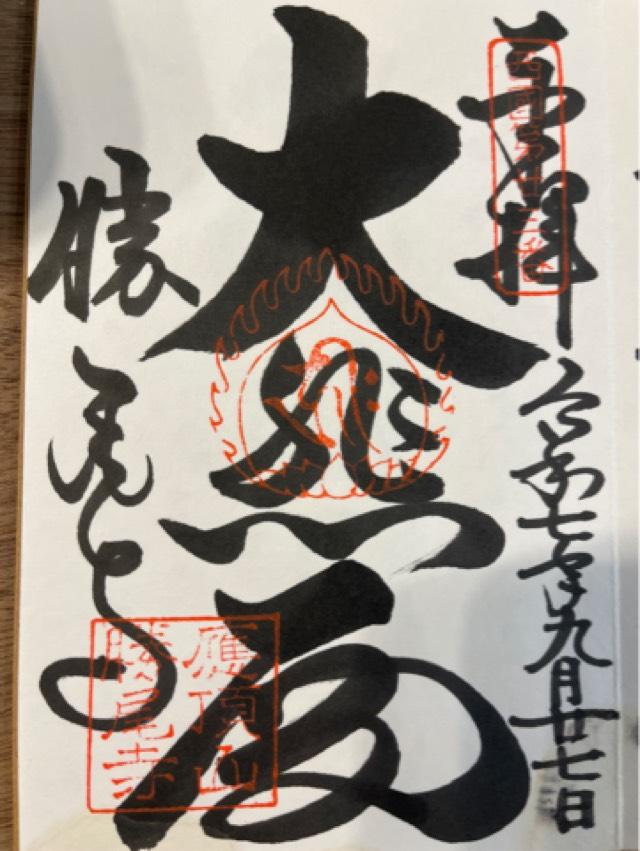 奉拝
西国第廿三番
令和七年九月廿七日
大悲殿
勝尾寺
應頂山
勝尾寺